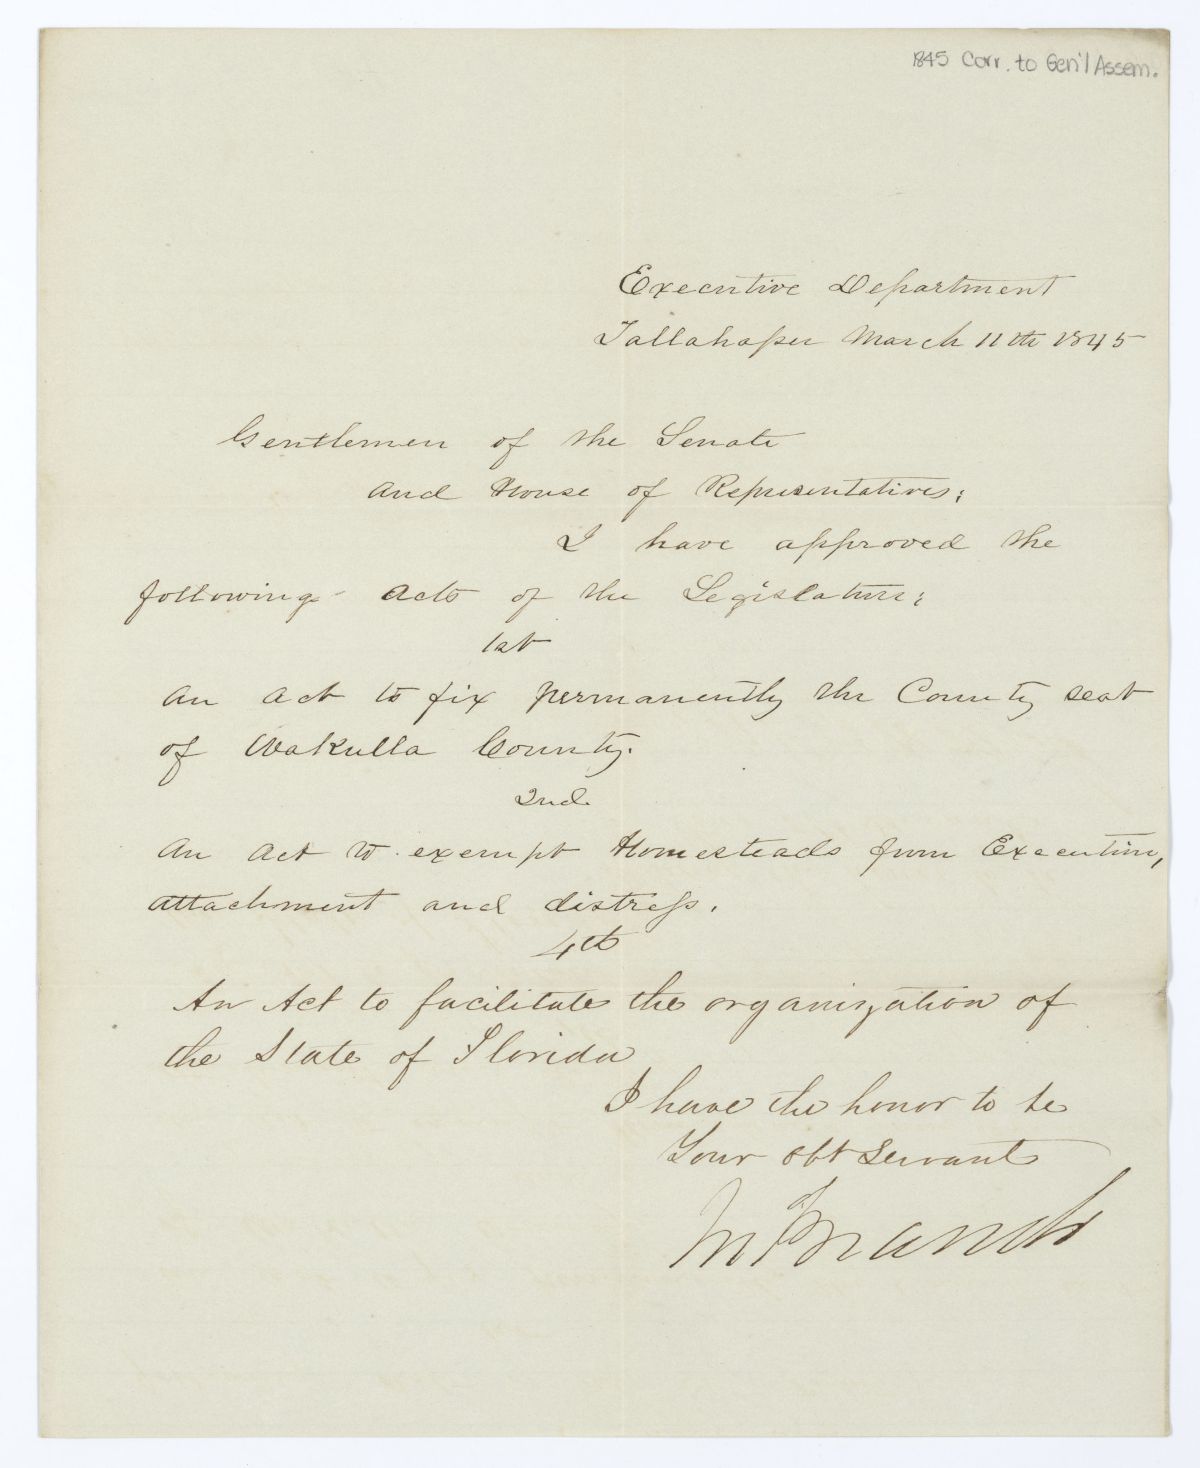 1845 Corr. to Gen'l Assem.
Executive Department
Tallahassee March 11th 1845
Gentlemen of the Senate
and House of Representatives;
I have approved the
following acts of the Legislature;
1st
An act to fix permanently the County seat
of Wakulla County.
2nd
An Act to exempt Homesteads from Execution,
attachment and distress.
4th
An Act to facilitate the organization of
the State of Florida
I have the honor to be
Your obt Servant
Jno Branch